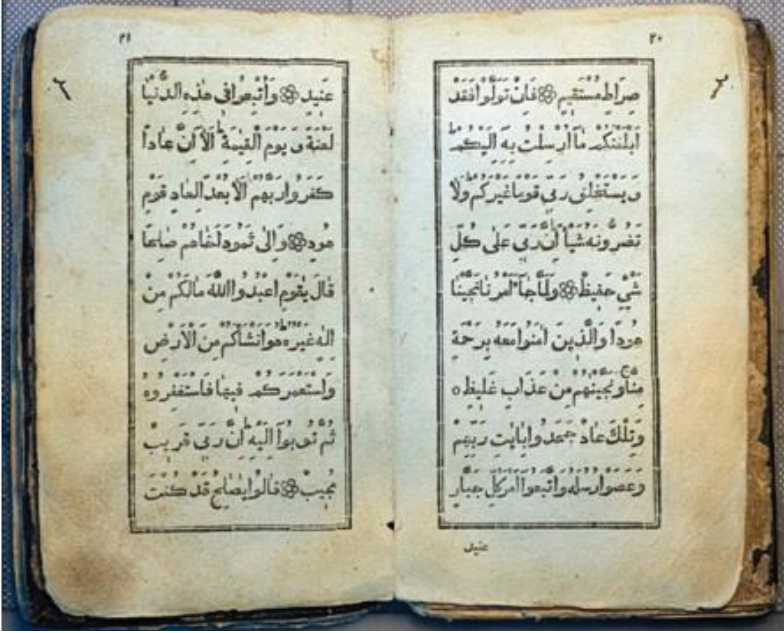 ٢٠
صِرَاطٍ مُسْتَقِيمٍ ۞ فَاِنْ تَوَلَّوْا فَقَدْ
اَبْلَغْتُكُمْ مَٓا اُرْسِلْتُ بِهٖٓ اِلَيْكُمْ ط
وَيَسْتَخْلِفُ رَبّٖى قَوْمًا غَيْرَكُمْ وَلَا
تَضُرُّونَهُ شَيْـًٔا اِنَّ رَبّٖى عَلٰى كُلِّ
شَىْءٍ حَفٖيظٌ ۞ وَلَمَّا جَٓاءَ اَمْرُنَا نَجَّيْنَا
هُودًا وَالَّذٖينَ اٰمَنُوا مَعَهُ بِرَحْمَةٍ
مِنَّا وَنَجَّيْنٰهُمْ مِنْ عَذَابٍ غَلٖيظٍ ه
وَتِلْكَ عَادٌ جَحَدُوا بِاٰيَاتِ رَبِّهِمْ
وَعَصَوْا رُسُلَهُ وَاتَّبَعُٓوا اَمْرَ كُلِّ جَبَّارٍ
عنيد
٢١
عَنٖيدٍ ۞ وَاُتْبِعُوا فٖى هٰذِهِ الدُّنْيَا
لَعْنَةً وَيَوْمَ الْقِيٰمَةِ ط اَلَٓا اِنَّ عَادًا
كَفَرُوا رَبَّهُمْ اَلَا بُعْدًا لِعَادٍ قَوْمِ
هُودٍ ۞ وَاِلٰى ثَمُودَ اَخَاهُمْ صَالِحًا
قَالَ يٰقَوْمِ اعْبُدُوا اللّٰهَ مَا لَكُمْ مِنْ
اِلٰهٍ غَيْرُهُ ط هُوَ اَنْشَاَكُمْ مِنَ الْاَرْضِ
وَاسْتَعْمَرَكُمْ فٖيهَا فَاسْتَغْفِرُوهُ
ثُمَّ تُوبُٓوا اِلَيْهِ ط اِنَّ رَبّٖى قَرٖيبٌ
مُجٖيبٌ ۞ قَالُوا يٰصَالِحُ قَدْ كُنْتَ